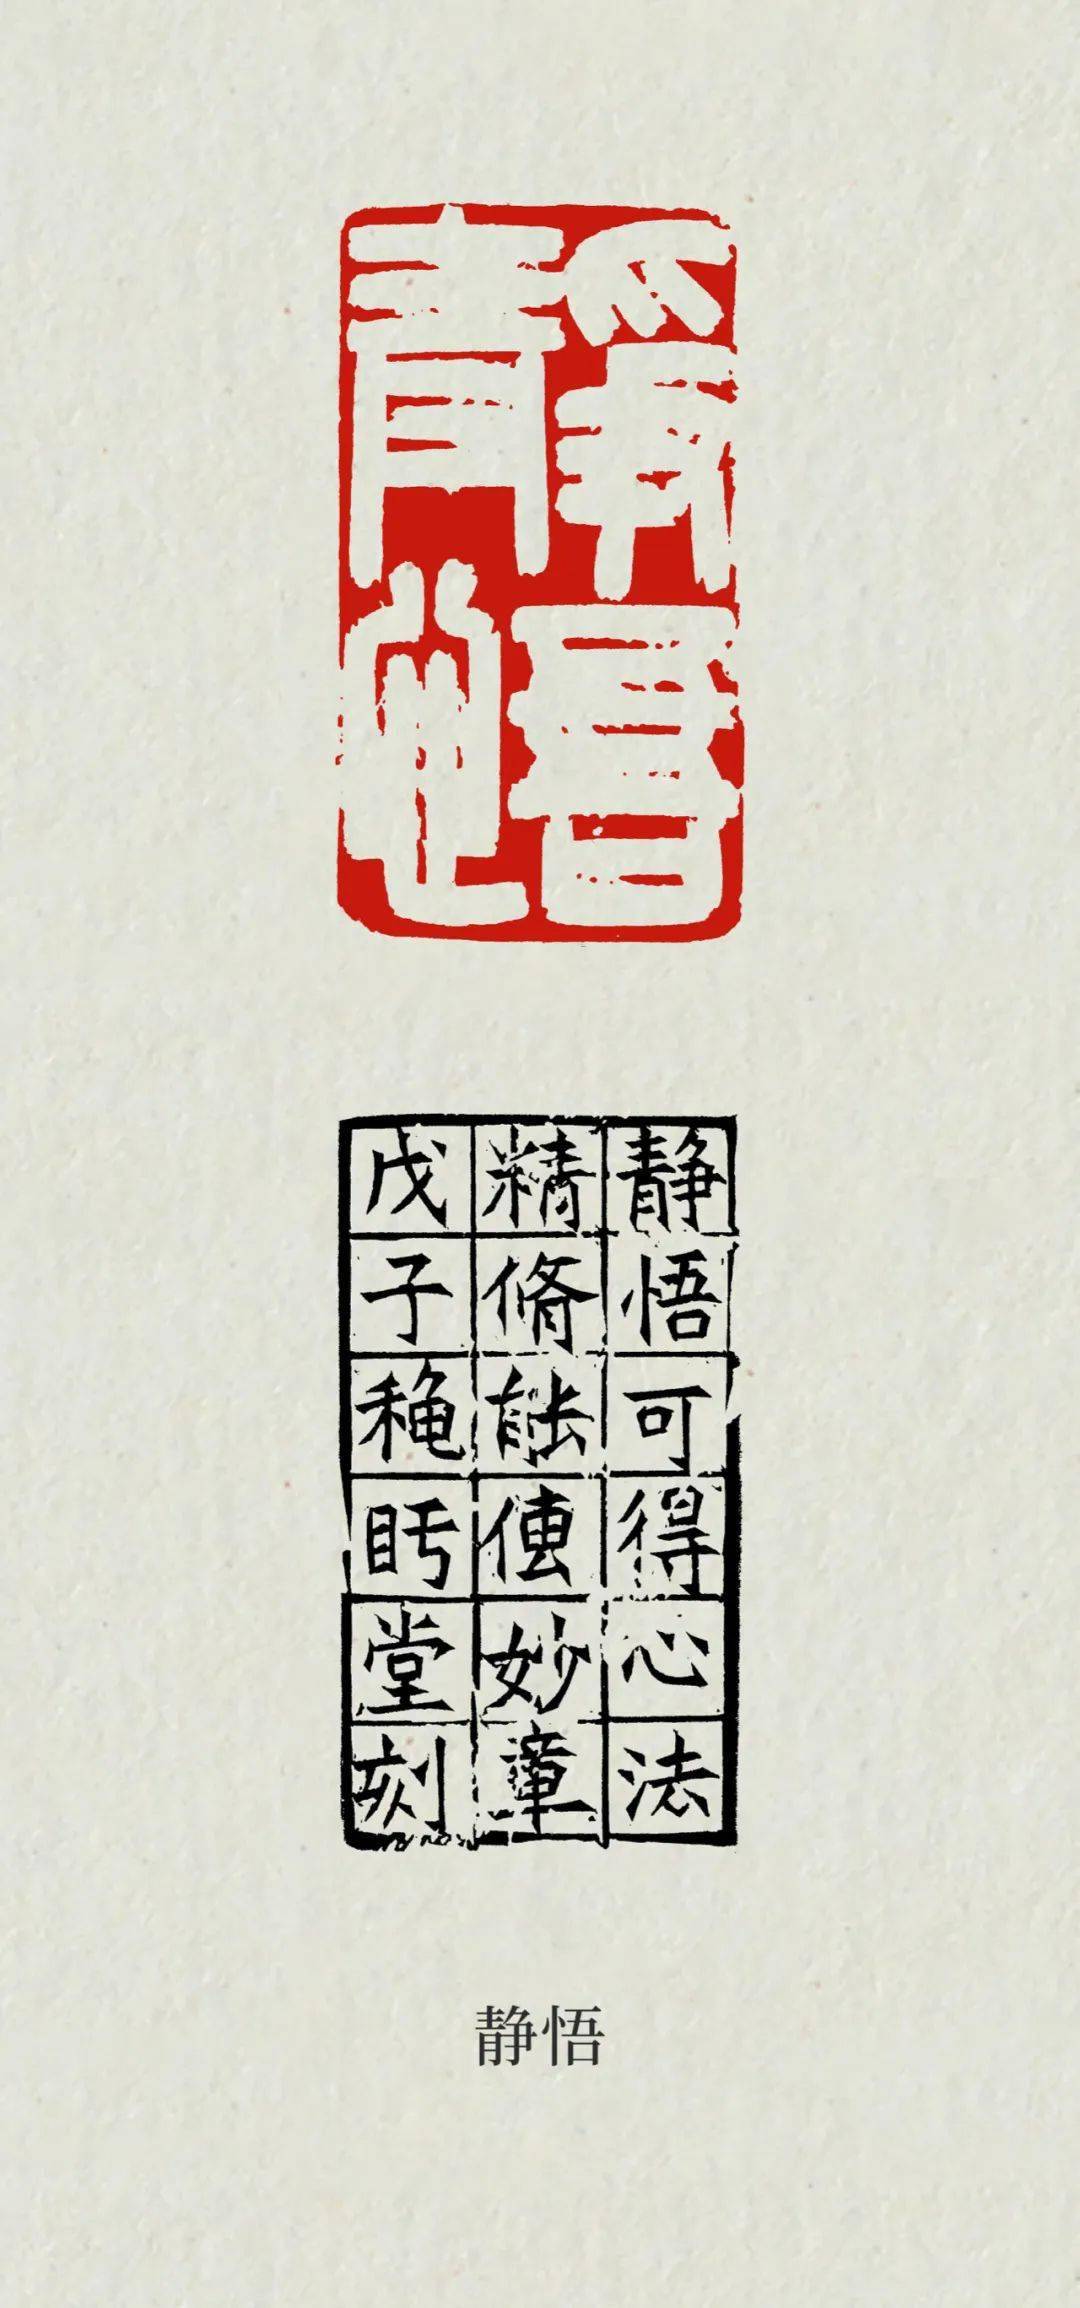 静悟
静悟可得心法
精脩能傳妙章
戊子穐眄堂刻
静悟